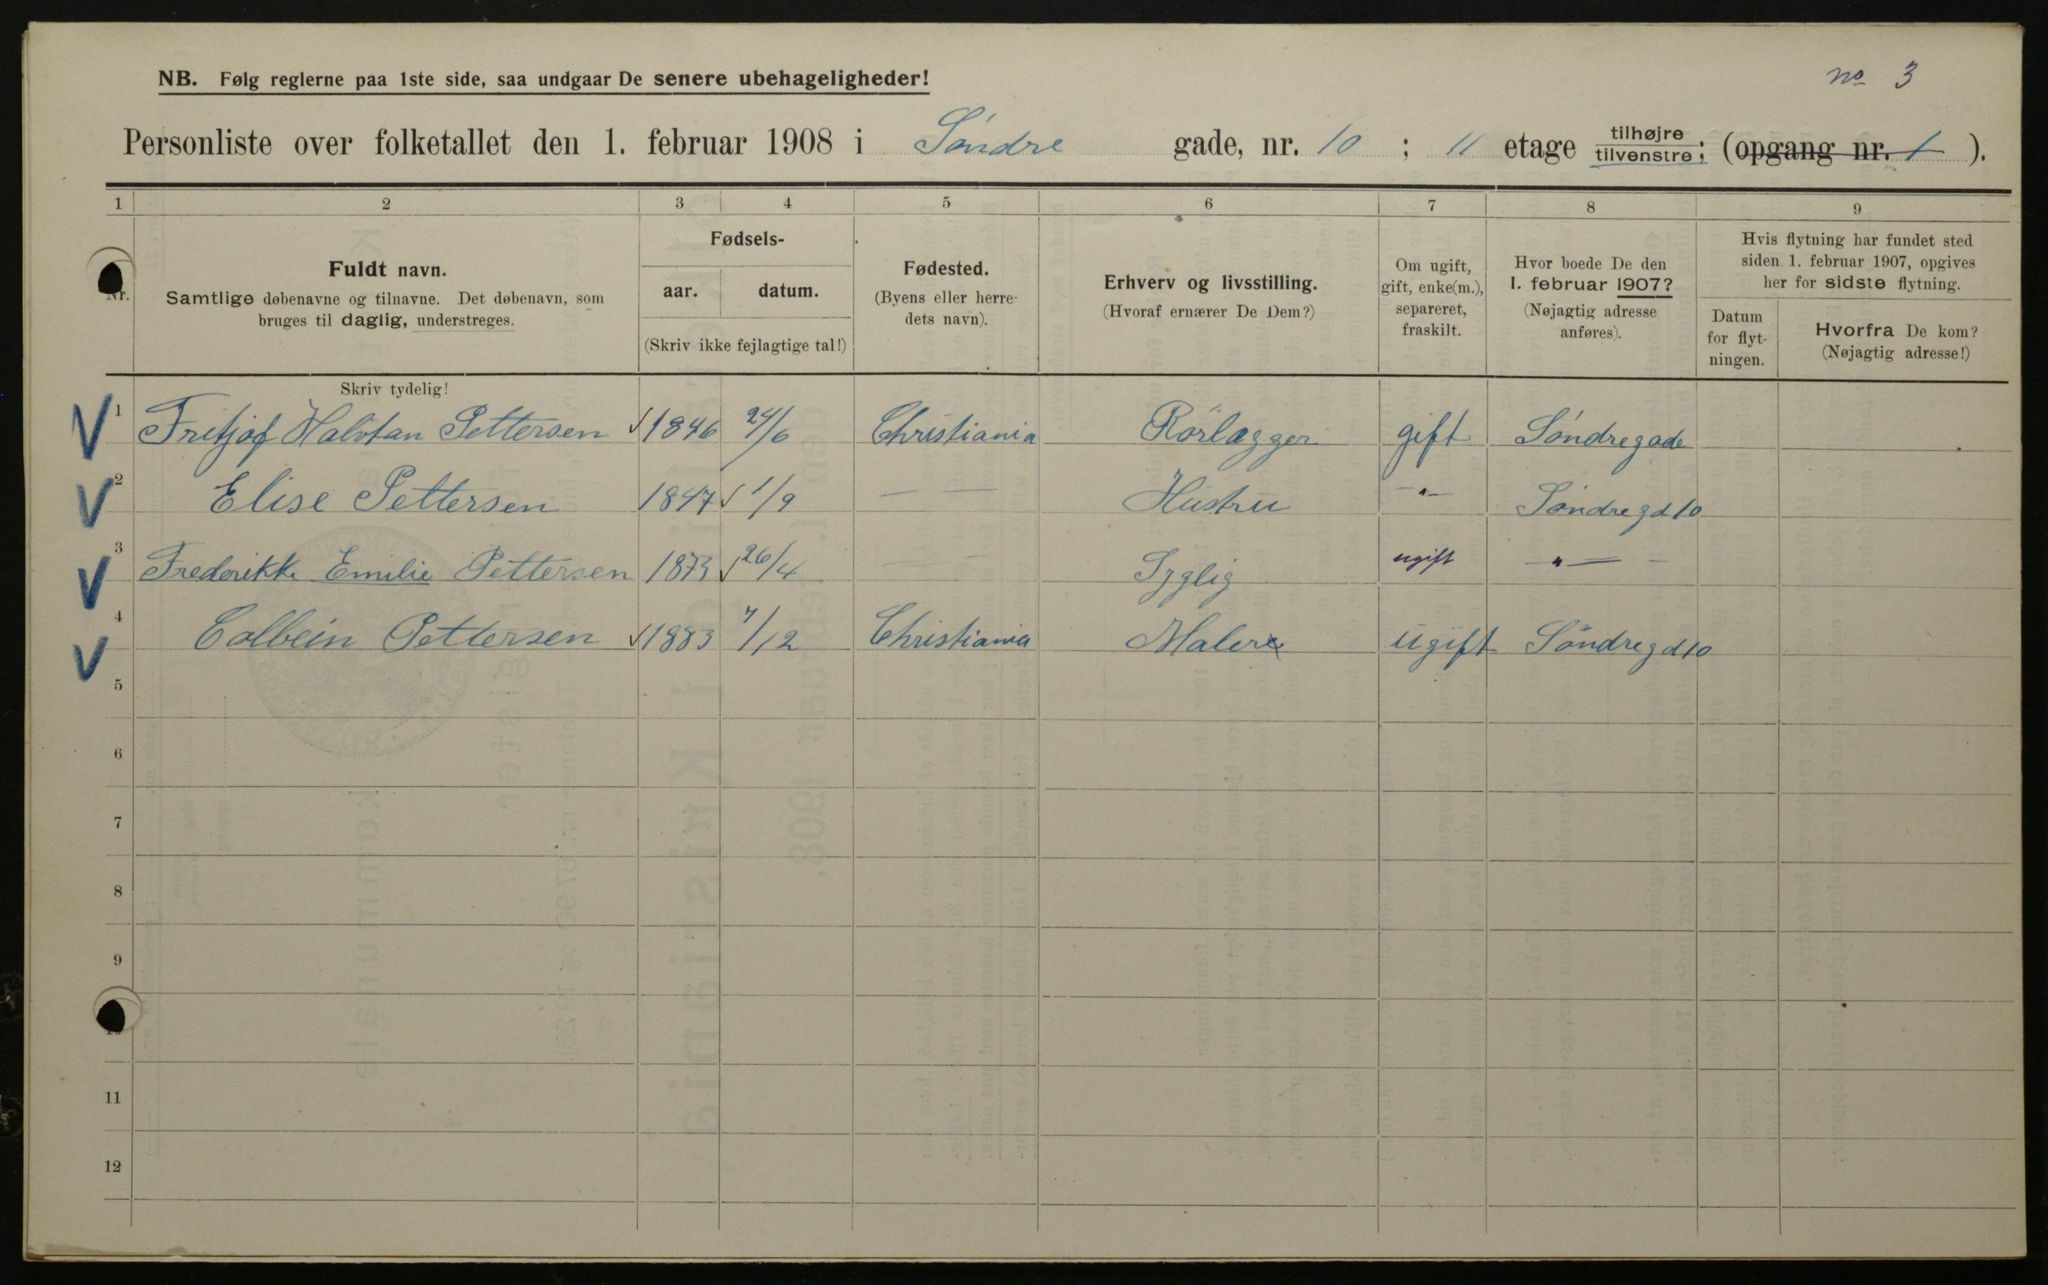 no 3
NB. Følg reglerne paa 1ste side, saa undgaar De senere ubehageligheder!
Personliste over folketallet den 1. februar 1908 i Søndre gade, nr. 10 ; 11 etage tilhøjre / tilvenstre; (opgang nr. 1 ).
1 2 3 4 5 6 7 8 9
Nr.
Fuldt navn.
Samtlige døbenavne og tilnavne. Det døbenavn, som
bruges til daglig, understreges.
Skriv tydelig!
Fødsels-
aar. datum.
(Skriv ikke fejlagtige tal!)
Fødested.
(Byens eller herre-
dets navn).
Erhverv og livsstilling.
(Hvoraf ernærer De Dem?)
Om ugift,
gift, enke(m.),
separeret,
fraskilt.
Hvor boede De den
1. februar 1907?
(Nøjagtig adresse
anføres).
Hvis flytning har fundet sted
siden 1. februar 1907, opgives
her for sidste flytning.
Datum
for flyt-
ningen.
Hvorfra De kom?
(Nøjagtig adresse!)
1 Fritjof Halvtan Pettersen 1846 24/6 Christiania Rörlægger gift Søndregade
2 Elise Pettersen 1847 1/9 — — Hustru —"— Søndregd 10
3 Frederikke Emilie Pettersen 1873 26/4 — — Syglig ugift —"—
4 Colbein Pettersen 1883 7/12 Christiania Maler ugift Søndregd 10
5
6
7
8
9
10
11
12